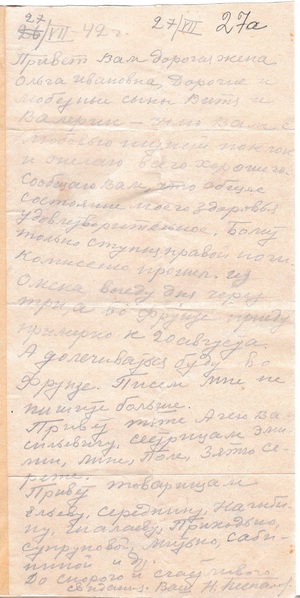 27
26/VII-42 г. 27/VII 27а
Привет Вам дорогая жена
Ольга Ивановна, Дорогие и
любимые сыны Витя и
Валерий – шлю Вам с
любовью низкий поклон
и желаю всего хорошего.
Сообщаю Вам, что общее
состояние моего здоровья
удовлетворительное. Болит
только ступня правой ноги.
Комиссию прошел. Из
Омска выеду дня через
три, а во Фрунзе приеду
примерно к 20 августа.
А долечиваться буду во
Фрунзе. Писем мне не
пишите больше.
Привет тёте Агею Ва-
сильевичу, сестрицам Эми-
лии, Лине, Поле, Зятю Се-
реже.
Привет товарищам
Ельцу, Середкину,
Приходько,
Супруновой,
и др.
До скорого и счастливого
свидания. Ваш Н.